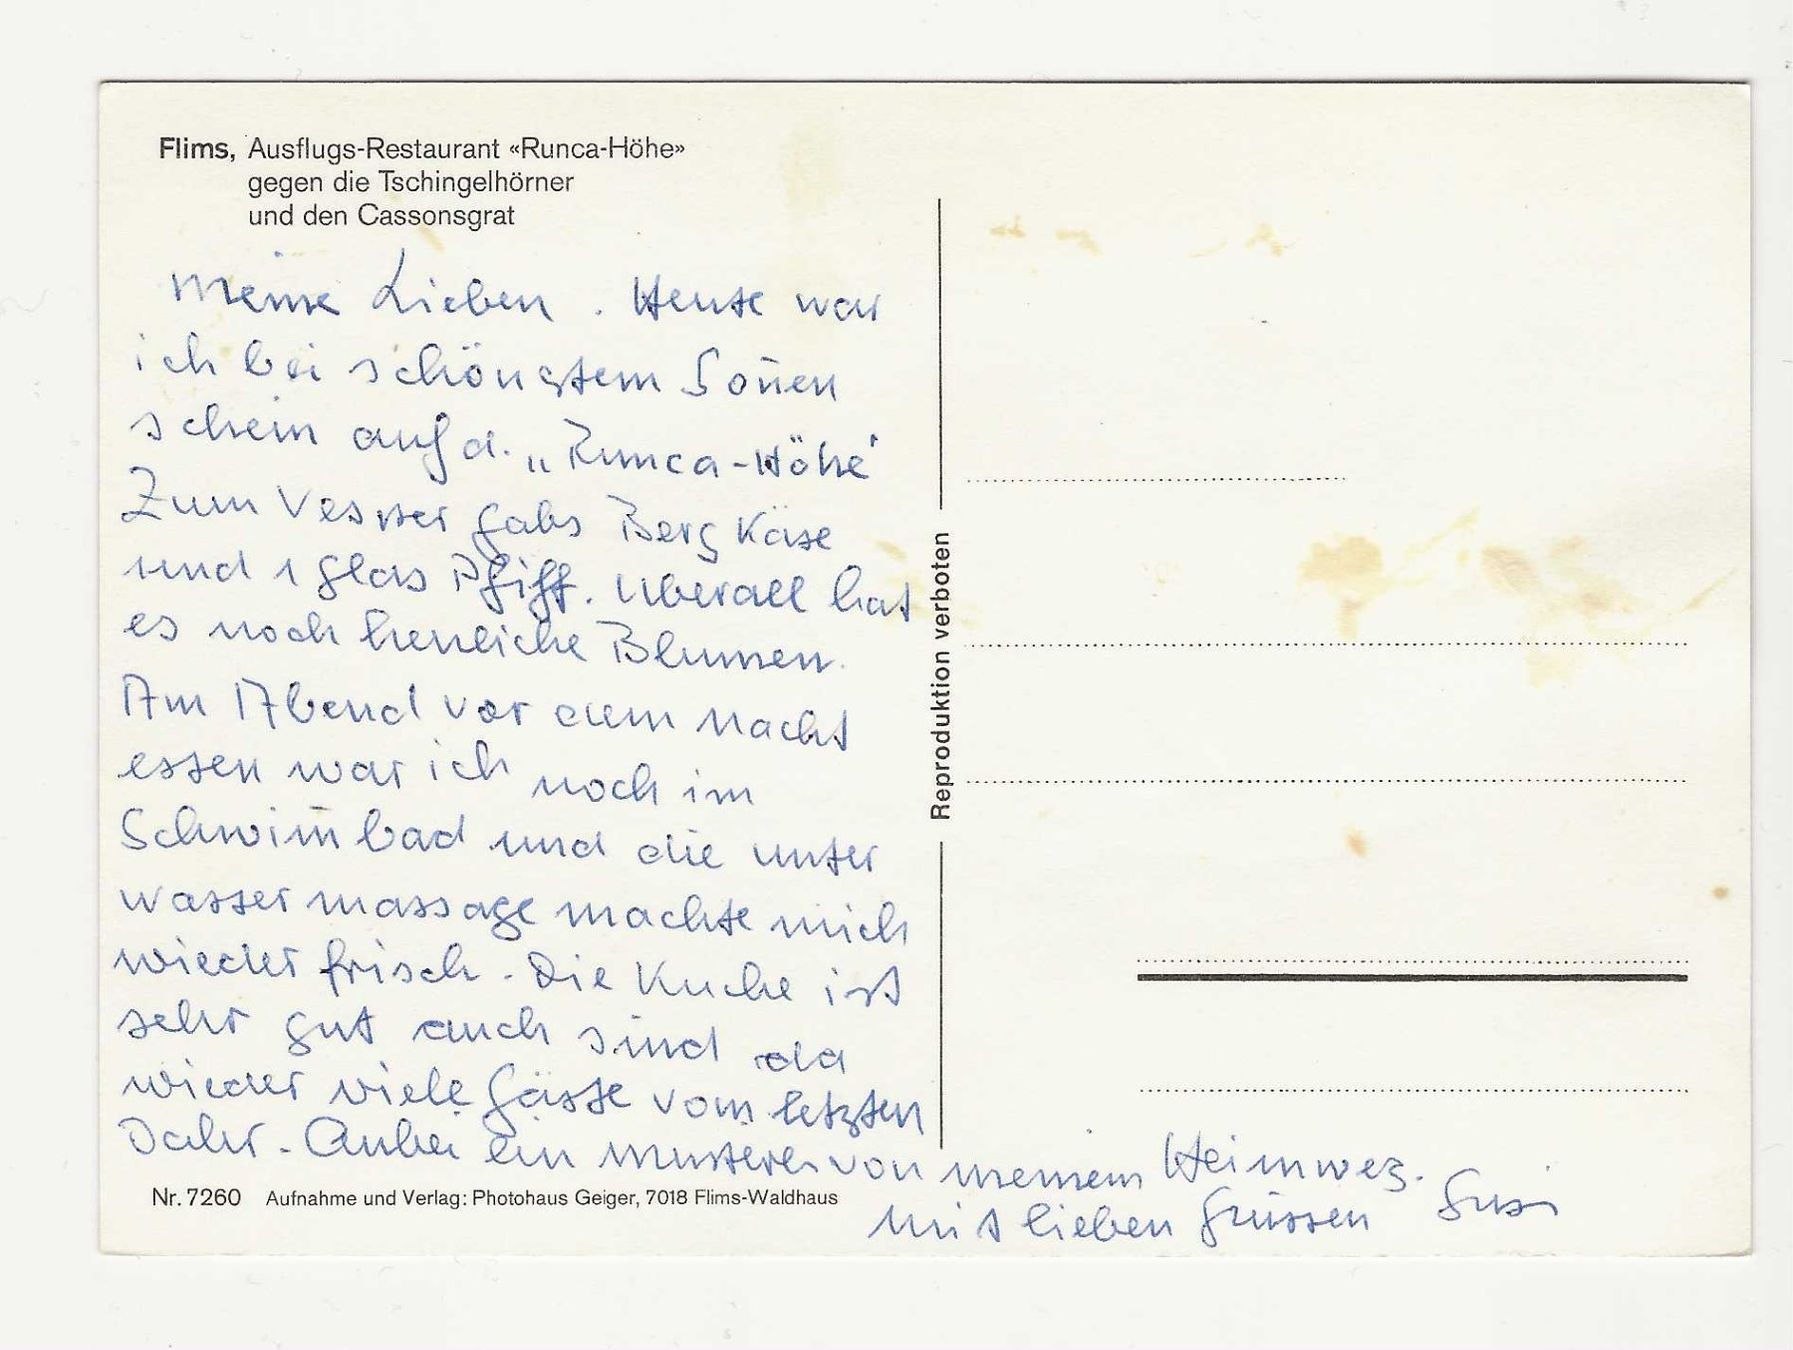 Flims, Ausflugs-Restaurant «Runca-Höhe»
gegen die Tschingelhörner
und den Cassonsgrat
Meine Lieben. Heute war
ich bei schönstem Soñen
schein auf d. „Runca-Höhe"
Zum Vesper gabs Berg Käse
und 1 Glas Pfiff. Überall hat
es noch herrliche Blumen.
Am Abend vor dem Nacht
essen war ich noch im
Schwim̄bad und die unter
wasser massage machte mich
wieder frisch. Die Küche ist
sehr gut auch sind da
wieder viele Gäste vom letzten
Jahr. Anbei ein von meinem Heimweg.
Mit lieben Grüssen Susi
Reproduktion verboten
Nr. 7260 Aufnahme und Verlag: Photohaus Geiger, 7018 Flims-Waldhaus